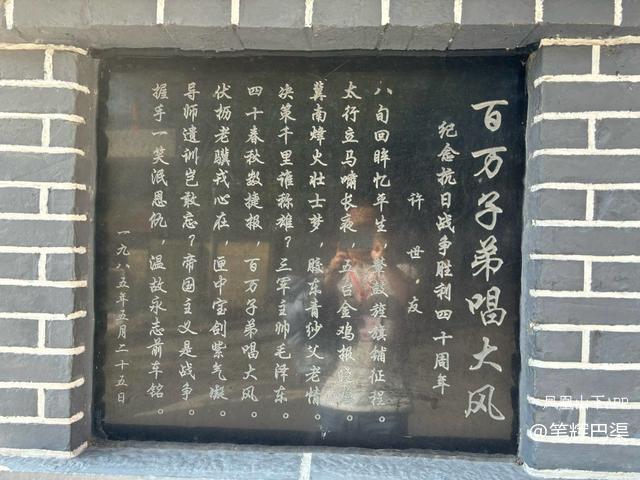 百万子弟唱大风
纪念抗日战争胜利四十周年
许世友
八旬回眸忆平生，鼙鼓旌旗铺征程。
太行立马啸长夜，五台金鸡报
冀南烽火壮士梦，胶东青纱父老情。
决策千里谁称雄？三军主帅毛泽东。
四十春秋数捷报，百万子弟唱大风。
伏枥老骥戎心在，匣中宝剑紫气凝。
导师遗训岂敢忘？帝国主义是战争。
握手一笑泯恩仇，温故永志前车铭。
一九八五年五月二十五日
@笔辉巴渠